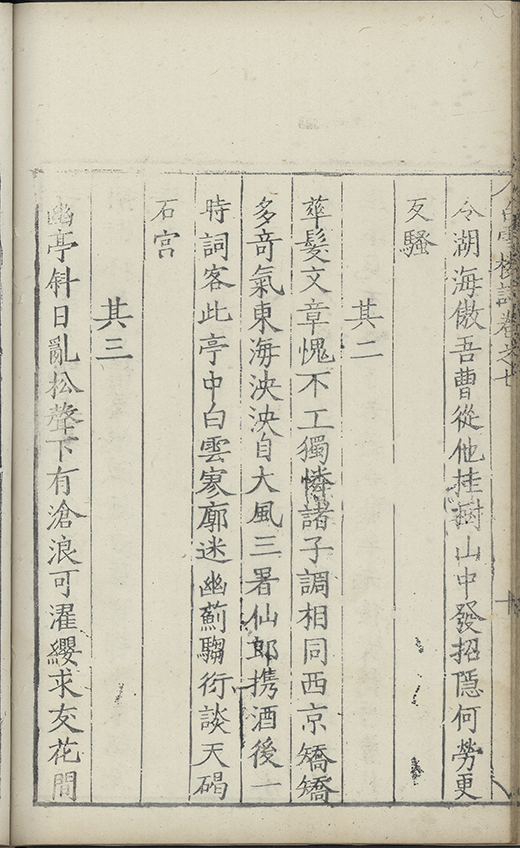 白雪樓詩卷之七
十
令湖海傲吾曹從他桂樹山中發招隱何勞更
反騷
其二
華髮文章愧不工獨憐諸子調相同西京矯矯
多奇氣東海泱泱自大風三署仙郎携酒後一
時詞客此亭中白雲寥廓迷幽薊騶衍談天碣
石宮
其三
幽亭斜日亂松聲下有滄浪可濯纓求友花間